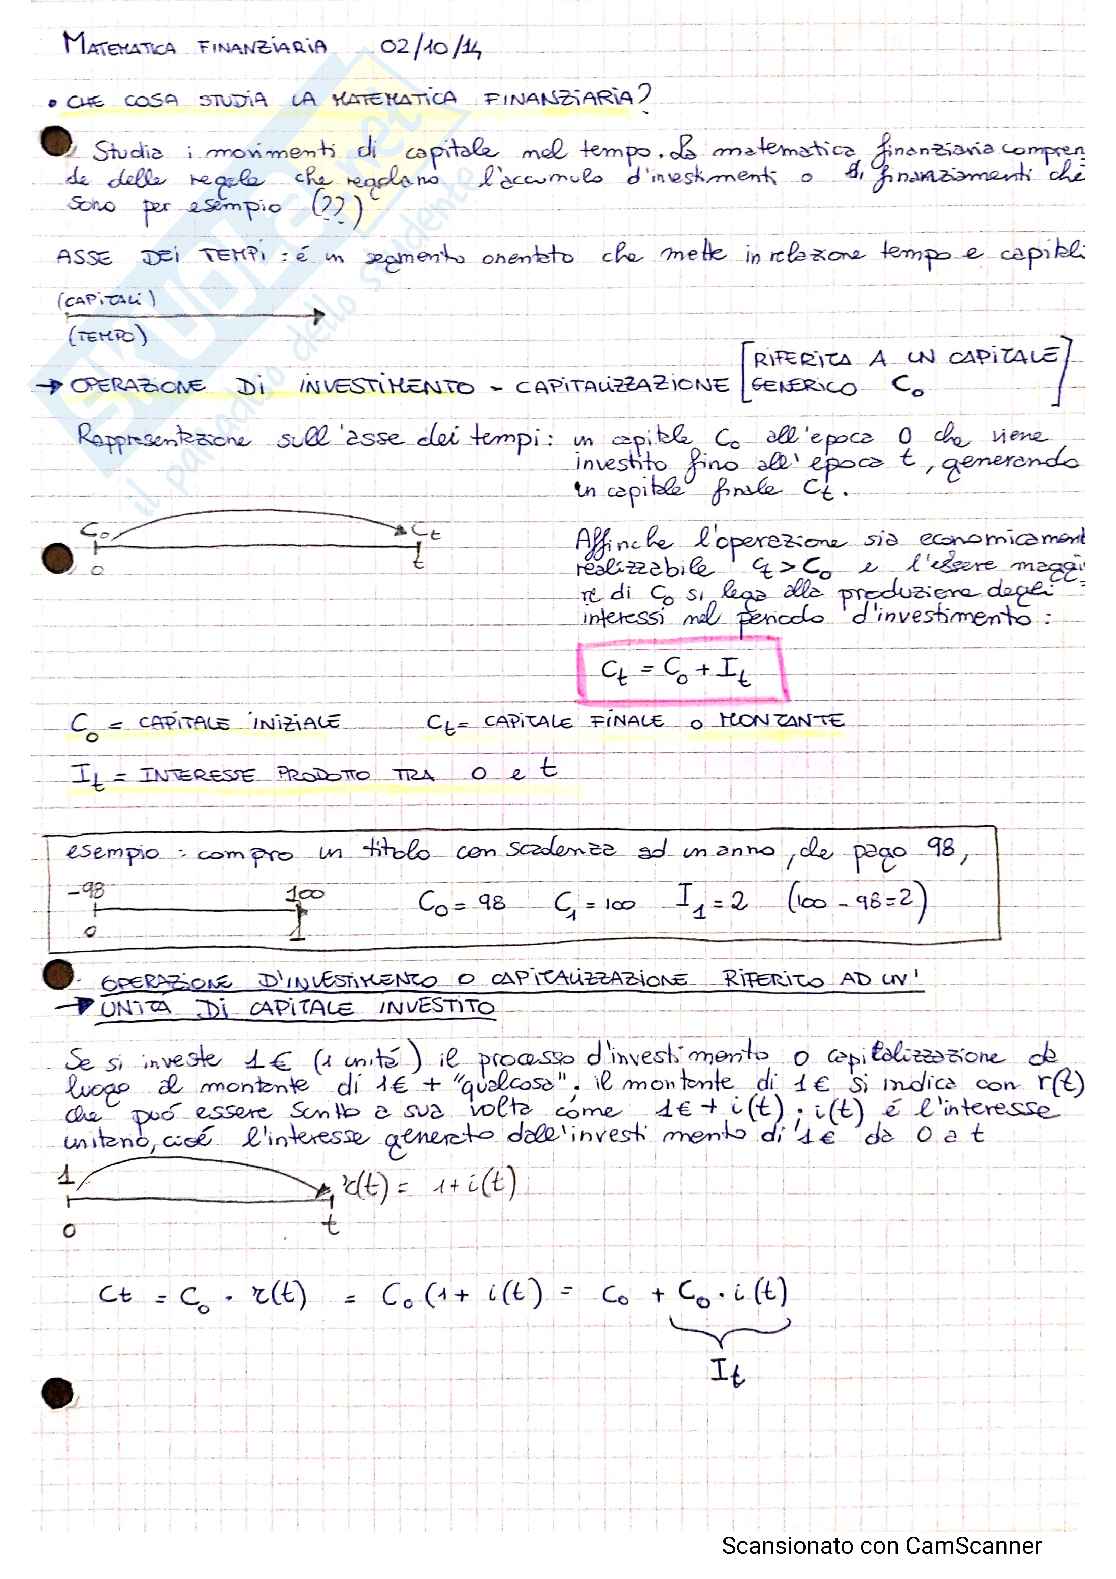 MATEMATICA FINANZIARIA 02/10/14
• CHE COSA STUDIA LA MATEMATICA FINANZIARIA?
Studia i movimenti di capitale nel tempo. La matematica finanziaria compren
de delle regole che regolano l'accumulo d'investimenti o di finanziamenti che
sono per esempio (??)
ASSE DEI TEMPI: é un segmento orientato che mette in relazione tempo e capitali
(CAPITALI)
(TEMPO)
→ OPERAZIONE DI INVESTIMENTO - CAPITALIZZAZIONE [RIFERITA A UN CAPITALE
GENERICO C₀]
Rappresentazione sull'asse dei tempi: un capitale C₀ all'epoca 0 che viene
investito fino all'epoca t, generando
un capitale finale Ct.
C₀ Ct
0 t
Affinche l'operazione sia economicament
realizzabile Ct > C₀ e l'essere maggio
re di C₀ si lega alla produzione degli
interessi nel periodo d'investimento:
Ct = C₀ + It
C₀ = CAPITALE INIZIALE Ct = CAPITALE FINALE O MONTANTE
It = INTERESSE PRODOTTO TRA 0 e t
esempio: compro un titolo con scadenza ad un anno, che pago 98,
-98 100 C₀ = 98 C₁ = 100 I₁ = 2 (100 - 98 = 2)
0 1
OPERAZIONE D'INVESTIMENTO O CAPITALIZZAZIONE RIFERITO AD UN'
→ UNITÀ DI CAPITALE INVESTITO
Se si investe 1€ (1 unitá) il processo d'investimento o capitalizzazione da
luogo al montante di 1€ + "qualcosa". il montante di 1€ si indica con r(t)
che puó essere scritto a sua volta come 1€ + i(t). i(t) é l'interesse
unitario, cioé l'interesse generato dall'investimento di 1€ da 0 a t
1 r(t) = 1 + i(t)
0 t
Ct = C₀ · r(t) = C₀ (1 + i(t) = C₀ + C₀ · i(t)
It
SKUOLA.net
il paradiso dello studente
Scansionato con CamScanner